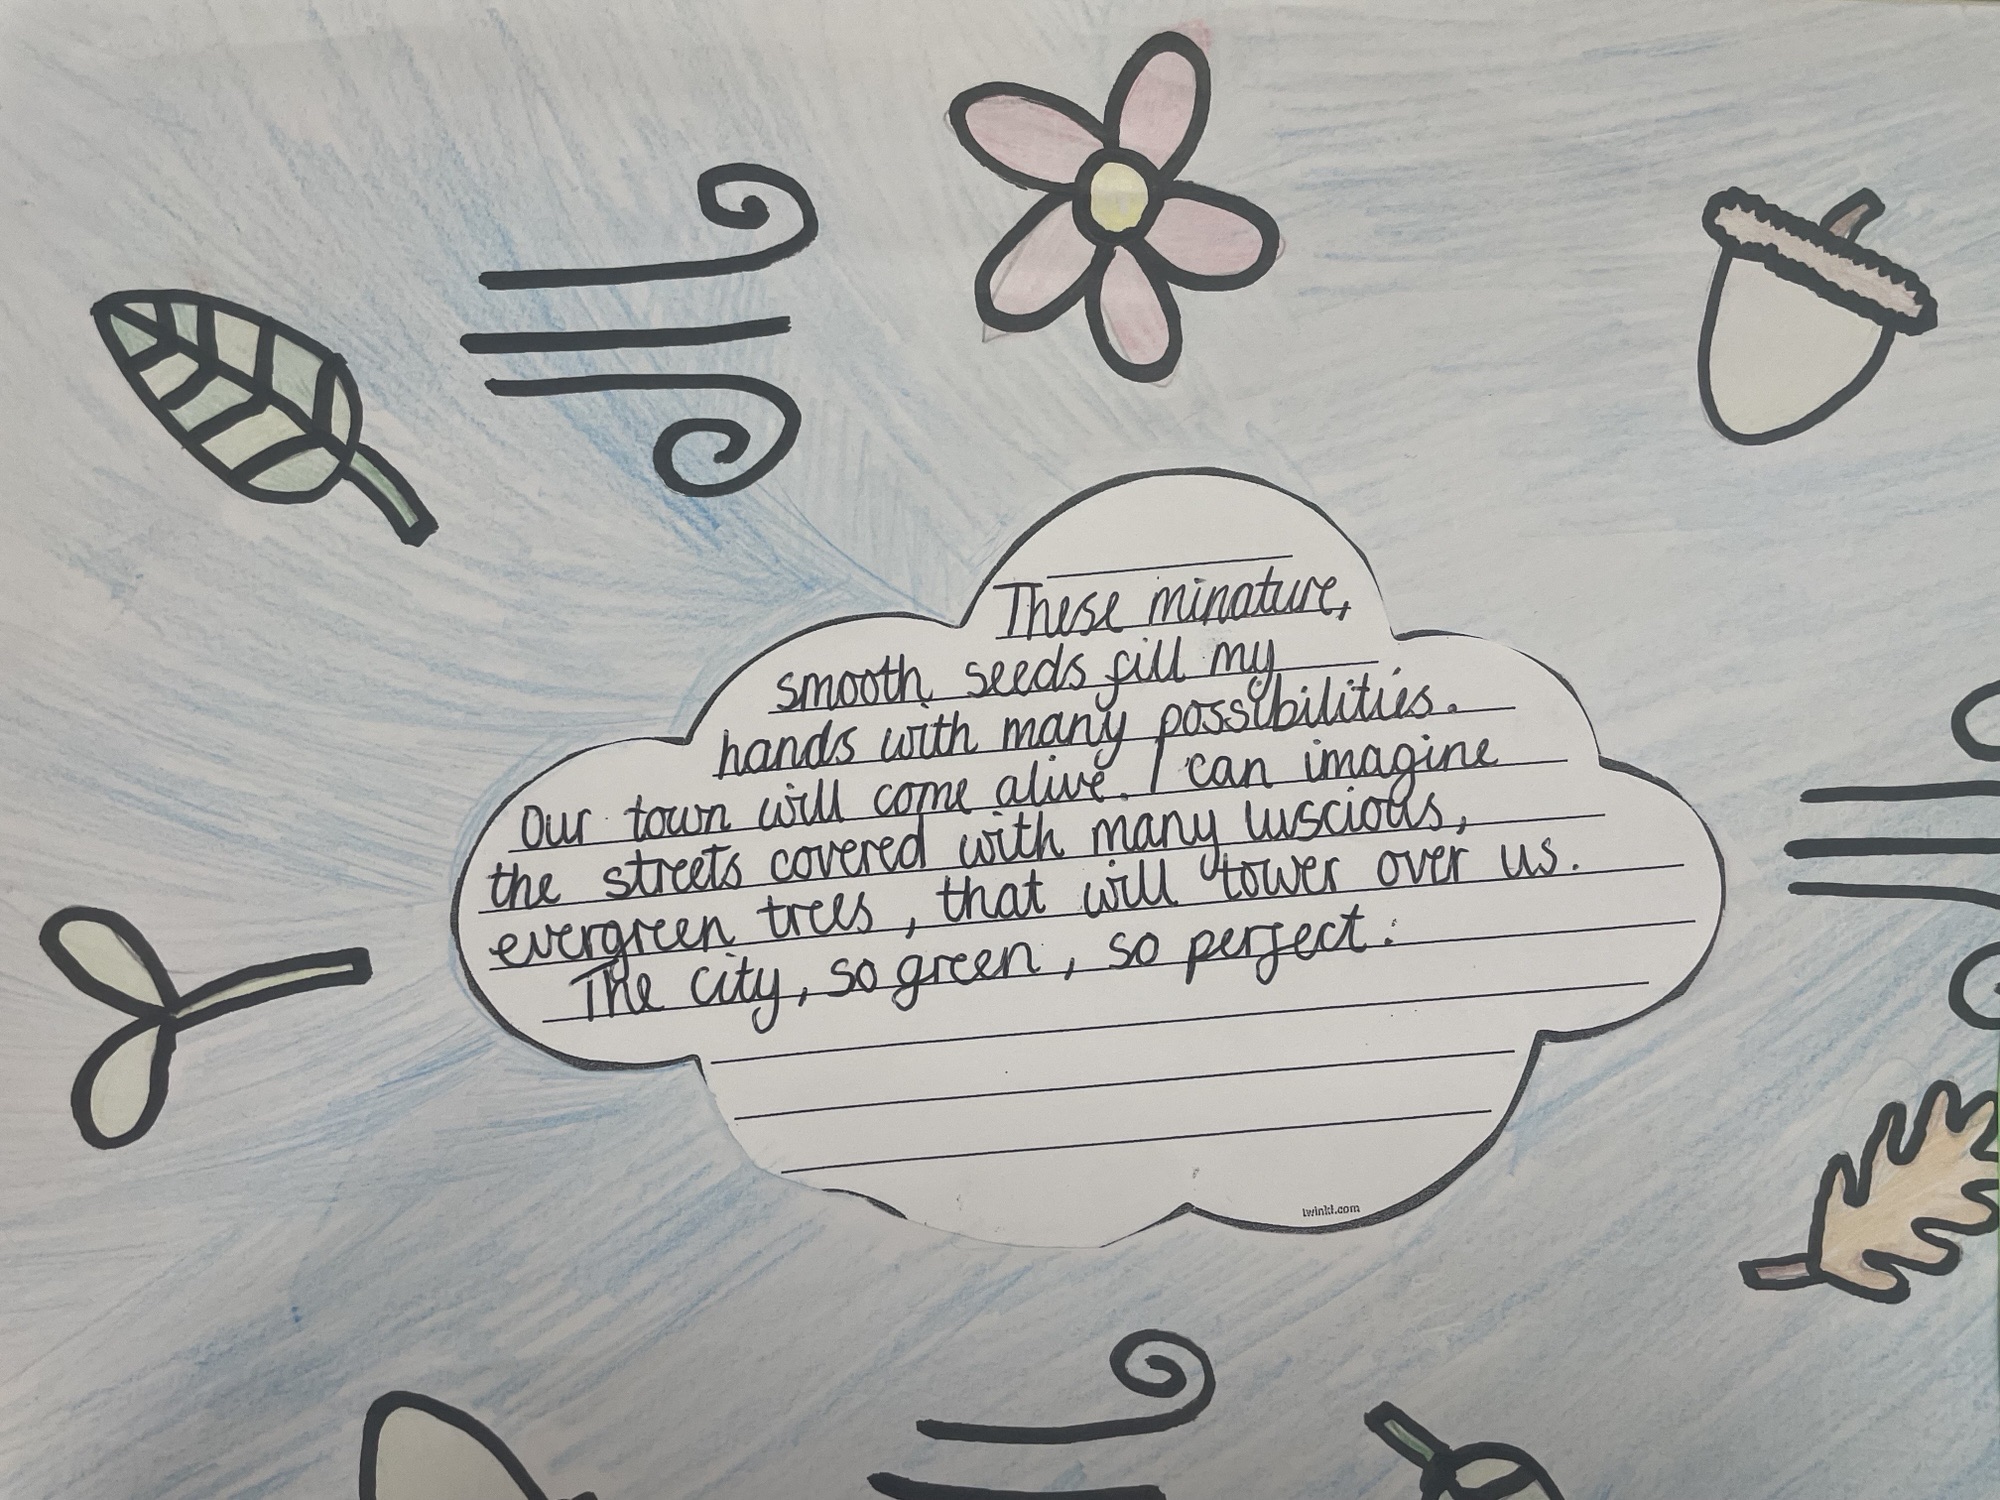 These minature,
smooth seeds fill my
hands with many possibilities.
Our town will come alive. I can imagine
the streets covered with many luscious,
evergreen trees, that will tower over us.
The city, so green, so perfect.
twinkl.com